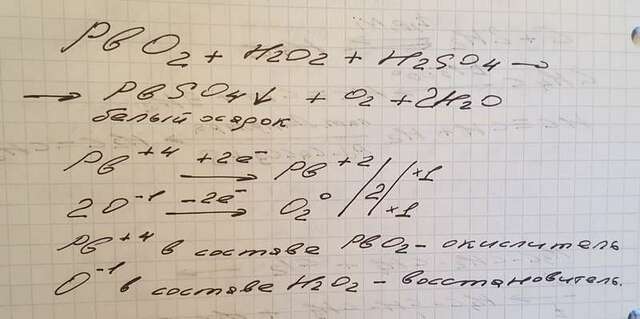 PbO2 + H2O2 + H2SO4 →
→ PbSO4↓ + O2 + 2H2O
белый осадок
Pb+4 +2e- → Pb+2 | 2 | ×1
2O-1 -2e- → O2 0 | | ×1
Pb+4 в составе PbO2 - окислитель
O-1 в составе H2O2 - восстановитель.